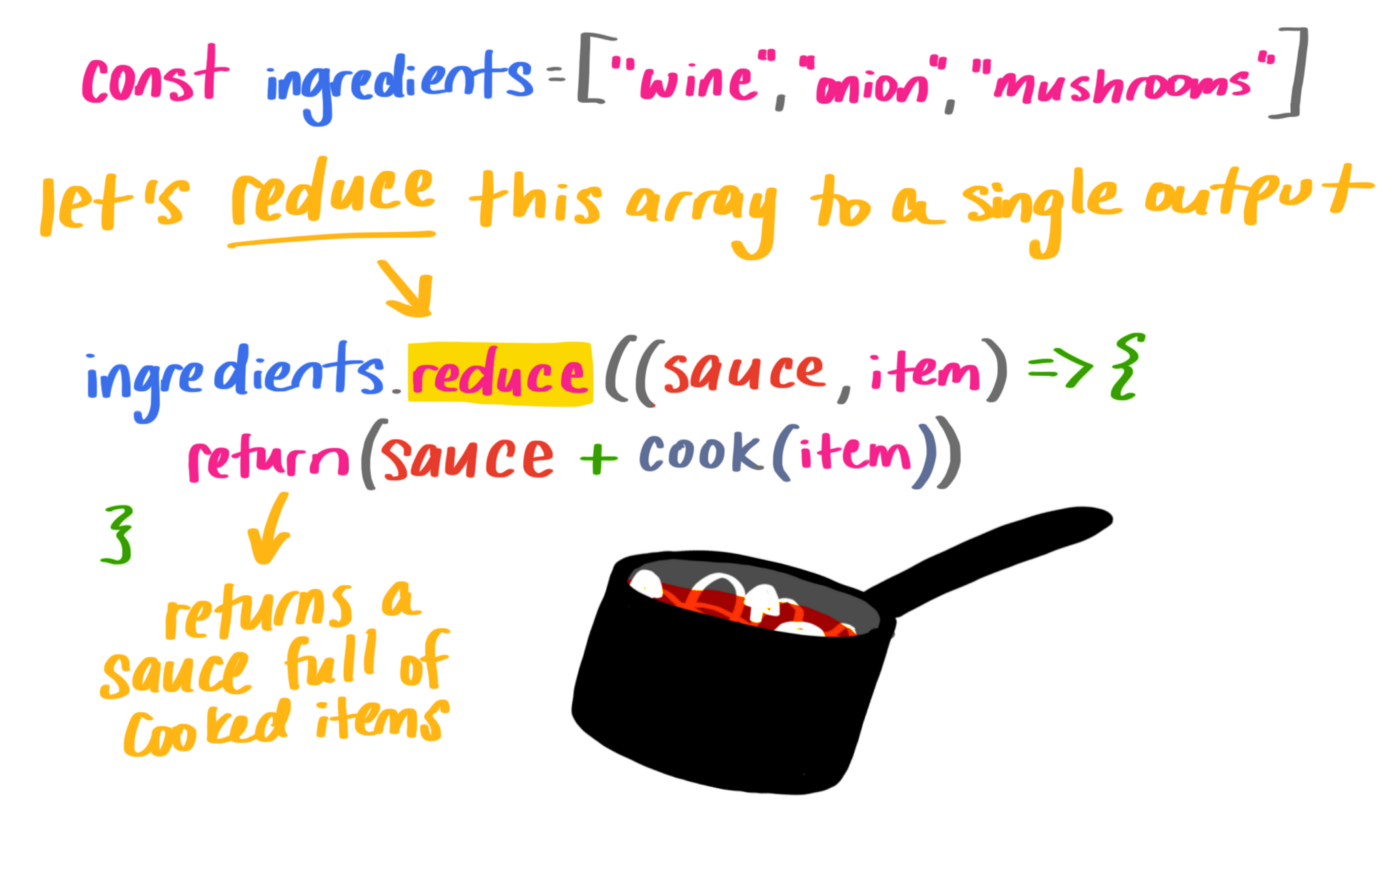 const ingredients=["wine","onion","mushrooms"]
let's reduce this array to a single output
ingredients.reduce((sauce,item)=>{
return(sauce + cook(item))
}
returns a
sauce full of
cooked items